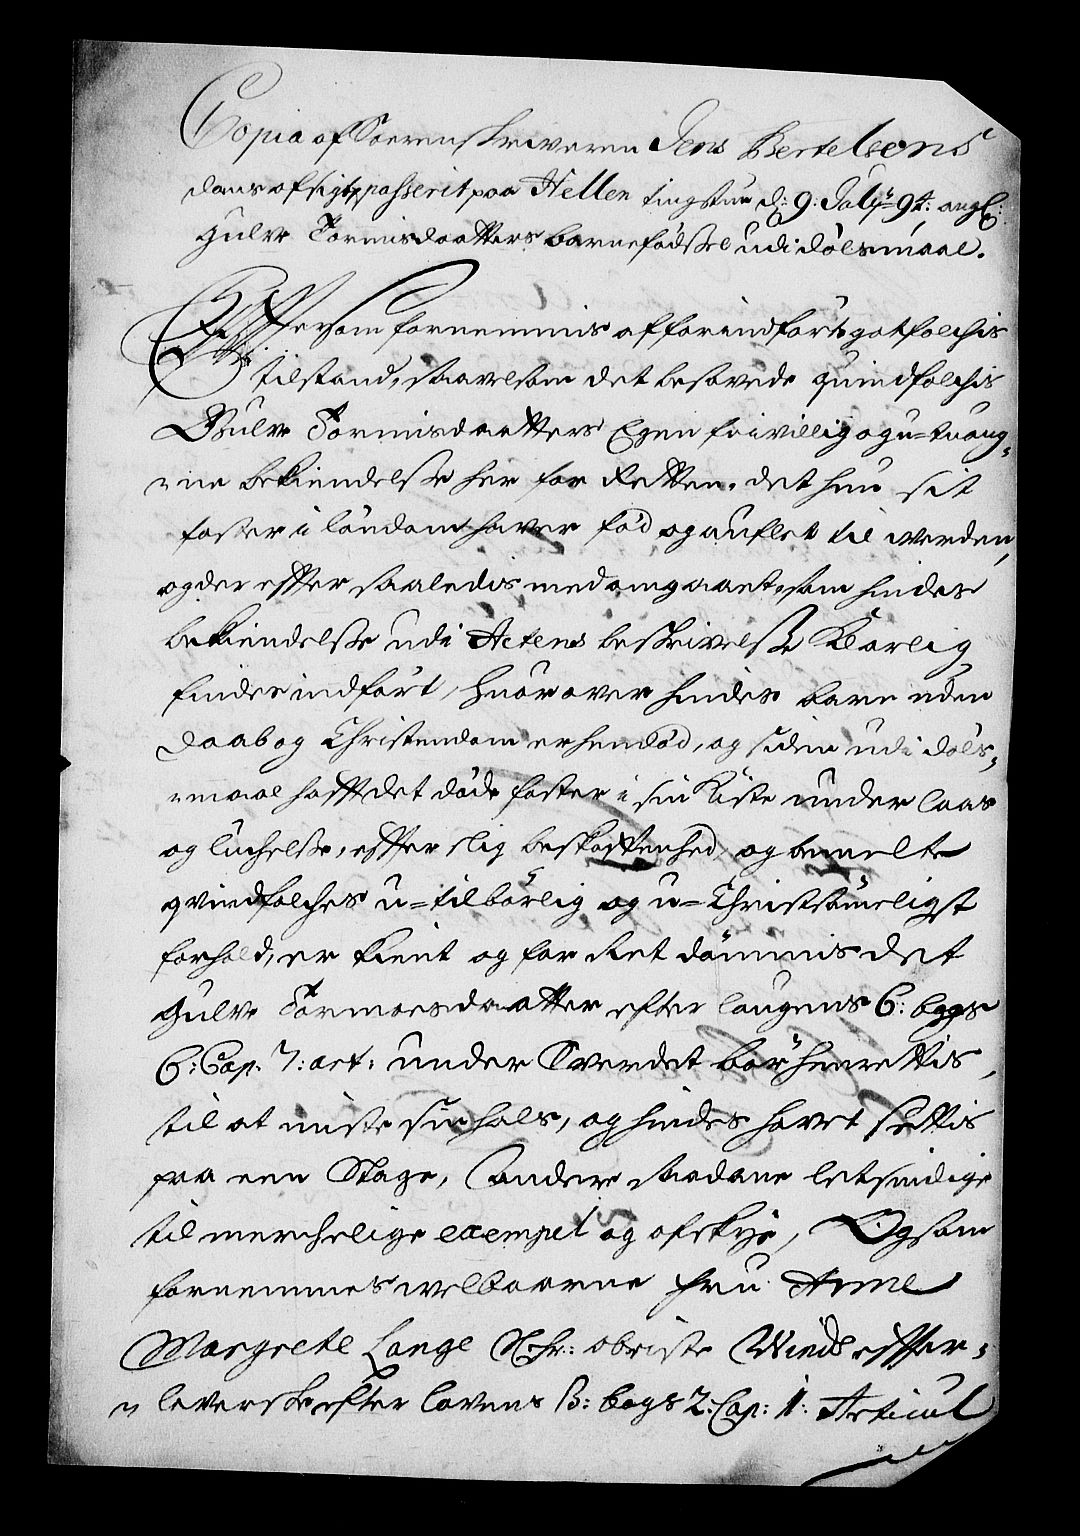 Copia af Soerenskriveren Jens Bertelsøns
doms afsigt, passerit paa Hellen tingstue d: 9: Julij 94: ang:
Gulve Tormisdaatters barnefødsel udi dølsmaal.
Effter som fornemmis af forindført gotfolchis
tilstand, saavelsom det besovede quindfolchis
Gulve Tormisdaatters Egen frivillig og u-tuang-
ne bekiendelse her for Retten, det hun sit
foster i løndom haver fød og auflet til werden,
og der effter saaledis med omgaaet, som hindes
bekiendelse udi Actens beskrivelse Klarlig
findes indført, huorover hindes barn uden
daab og Christendom er hendød, og siden udi døls-
maal hafft det døde foster i sin Kiste under laas
og luchelse, effter slig beskaffenhed, og bemelte
qvindfolches u-tilbørlig og u-Christsømeligst
forhold, er kient og for Ret dømmis det
Gulve Tormoesdaatter efter laugens 6: bogs
6: Cap. 7: art: under Sverdet bør henrettis,
til at miste sin hals, og hindes hovet settis
paa een Stage, andere saadane letsindige
til merchelige exempel og afskye, Og som
fornemmes welbaarne Fru Anne
Margrete Lange S. hr: obriste Winds effter-
leverske efter lovens 3: bogs 2: Cap: 1: Articul